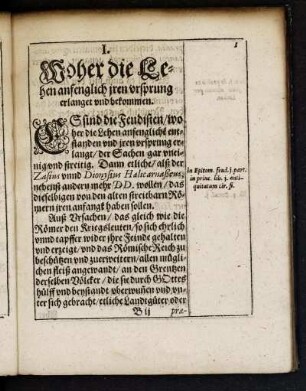 1
I.
Woher die Le-
hen anfenglich jren vrsprung
erlanget vnd bekommen.
ES sind die Feudisten/ wo
her die Lehen anfenglichẽ ent-
standen vnd jren vrsprung er-
langt/ der Sachen gar vnei-
nig vnd streitig. Dann etliche/ als der
Zasius vnnd Dionysius Halicarnasseus,
nebenst andern mehr DD. wollen/ das
dieselbigen von den alten streitbarn Rö-
mern jren anfangk haben sollen.
Auß Vrsachen/ das gleich wie die
Römer den Kriegsleuten/ so sich ehrlich
vnnd tapffer wider jhre Feinde gehalten
vnd erzeigt/ vnd das Römische Reich zu
beschützen vnd zuerweitern/ allen müglichen
fleiß angewandt/ an den Grentzen
derselben Völcker/ die sie durch GOttes
hülff vnd beystandt vberwunden vnd vn-
ter sich gebracht/ etliche Landtgüter oder
B ij præ-
in Epitom. feud. 1. part.
in princ. lib. 3. anti-
quitatum cir. fi.